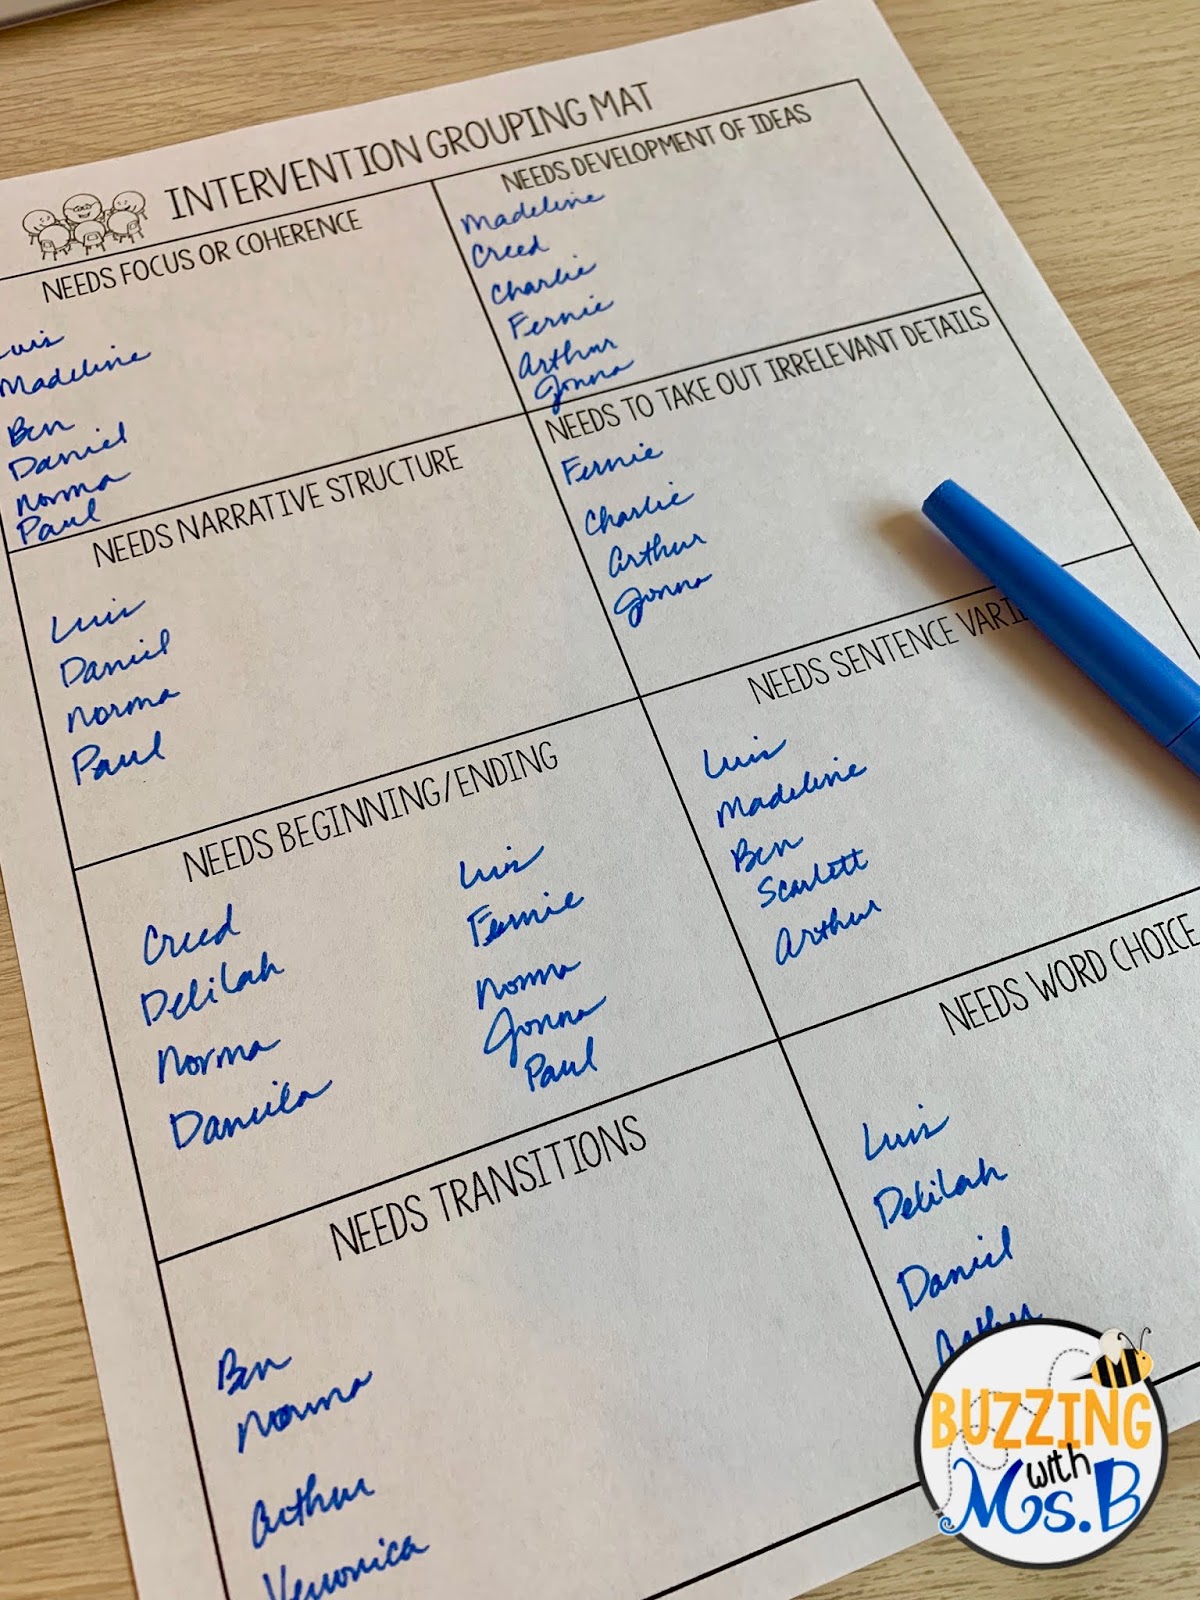 INTERVENTION GROUPING MAT
NEEDS FOCUS OR COHERENCE
Luis
Madeline
Ben
Daniel
Norma
Paul
NEEDS DEVELOPMENT OF IDEAS
Madeline
Creed
Charlie
Fernie
Arthur
Jonna
NEEDS NARRATIVE STRUCTURE
Luis
Daniel
Norma
Paul
NEEDS TO TAKE OUT IRRELEVANT DETAILS
Fernie
Charlie
Arthur
Jonna
NEEDS BEGINNING/ENDING
Creed
Delilah
Norma
Daniela
Luis
Fernie
Norma
Jonna
Paul
NEEDS SENTENCE
Luis
Madeline
Ben
Scarlett
Arthur
NEEDS TRANSITIONS
Ben
Norma
Arthur
Veronica
NEEDS WORD CHOICE
Luis
Delilah
Daniel
Arthur
BUZZING
with
Ms.B